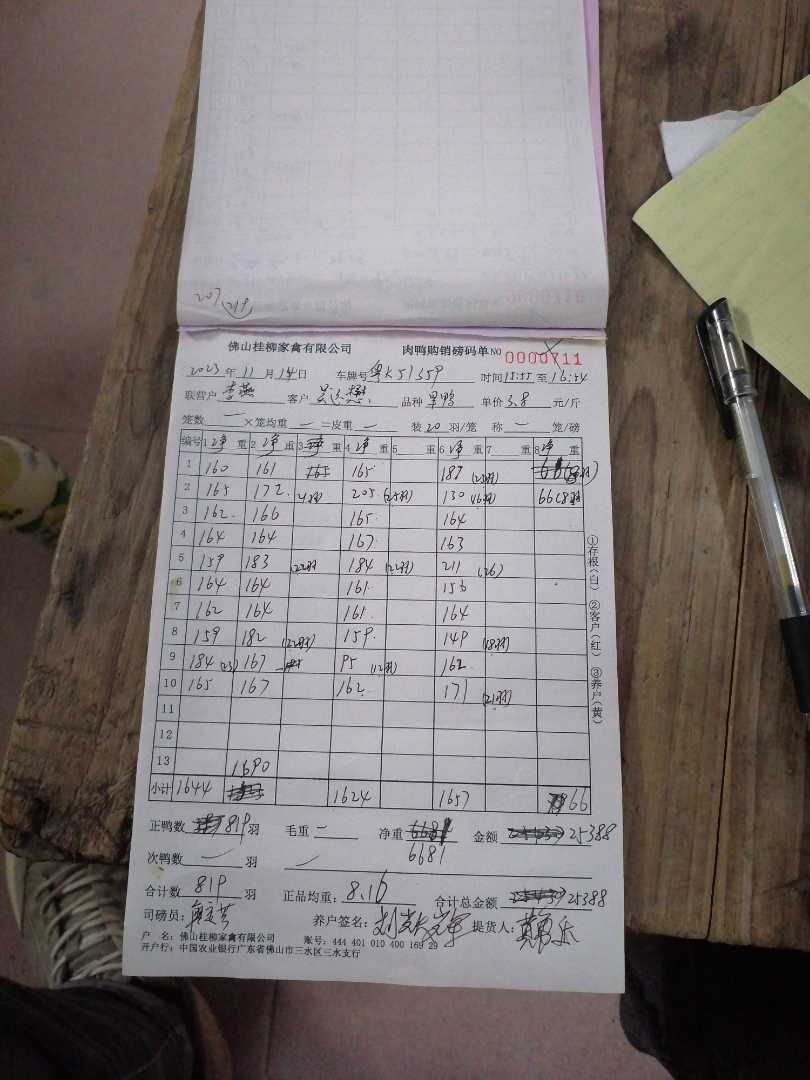 207 219
佛山桂柳家禽有限公司 肉鸭购销磅码单 NO 0000711
2023 年 11 月 14 日 车牌号 粤K51359 时间 15:55 至 16:54
联营户 李燕 客户 品种 单价 3.8 元/斤
笼数 一 ×笼均重 一 =皮重 一 装 20 羽/笼 称 一 笼/磅
编号 1 净 重 2 净 重 3 净 重 4 净 重 5 重 6 净 重 7 重 8 净 重
1 160 161 165 165 187 (23羽)
2 165 172 (21羽) 205 (25羽) 130 (16羽) 66 (8羽)
3 162 166 165 164
4 164 164 167 163
5 159 183 (22羽) 184 (22羽) 211 (26)
6 164 164 161 156
7 162 164 161 164
8 159 182 (22羽) 159 149 (18羽)
9 184 (23) 167 95 (12羽) 162
10 165 167 162 171 (21羽)
11
12
13 1690
小计 1644 1624 1657 66
正鸭数 819 羽 毛重 一 净重 6681 金额 25388
次鸭数 一 羽
合计数 819 羽 正品均重: 8.16 合计总金额 25388
司磅员: 养户签名: 提货人:
户 名: 佛山桂柳家禽有限公司 账号: 444 401 010 400 169 29
开户行: 中国农业银行广东省佛山市三水区三水支行
①存根(白) ②客户(红) ③养户(黄)